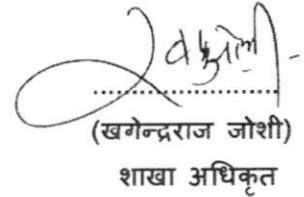 ....................................
(खगेन्द्रराज जोशी)
शाखा अधिकृत